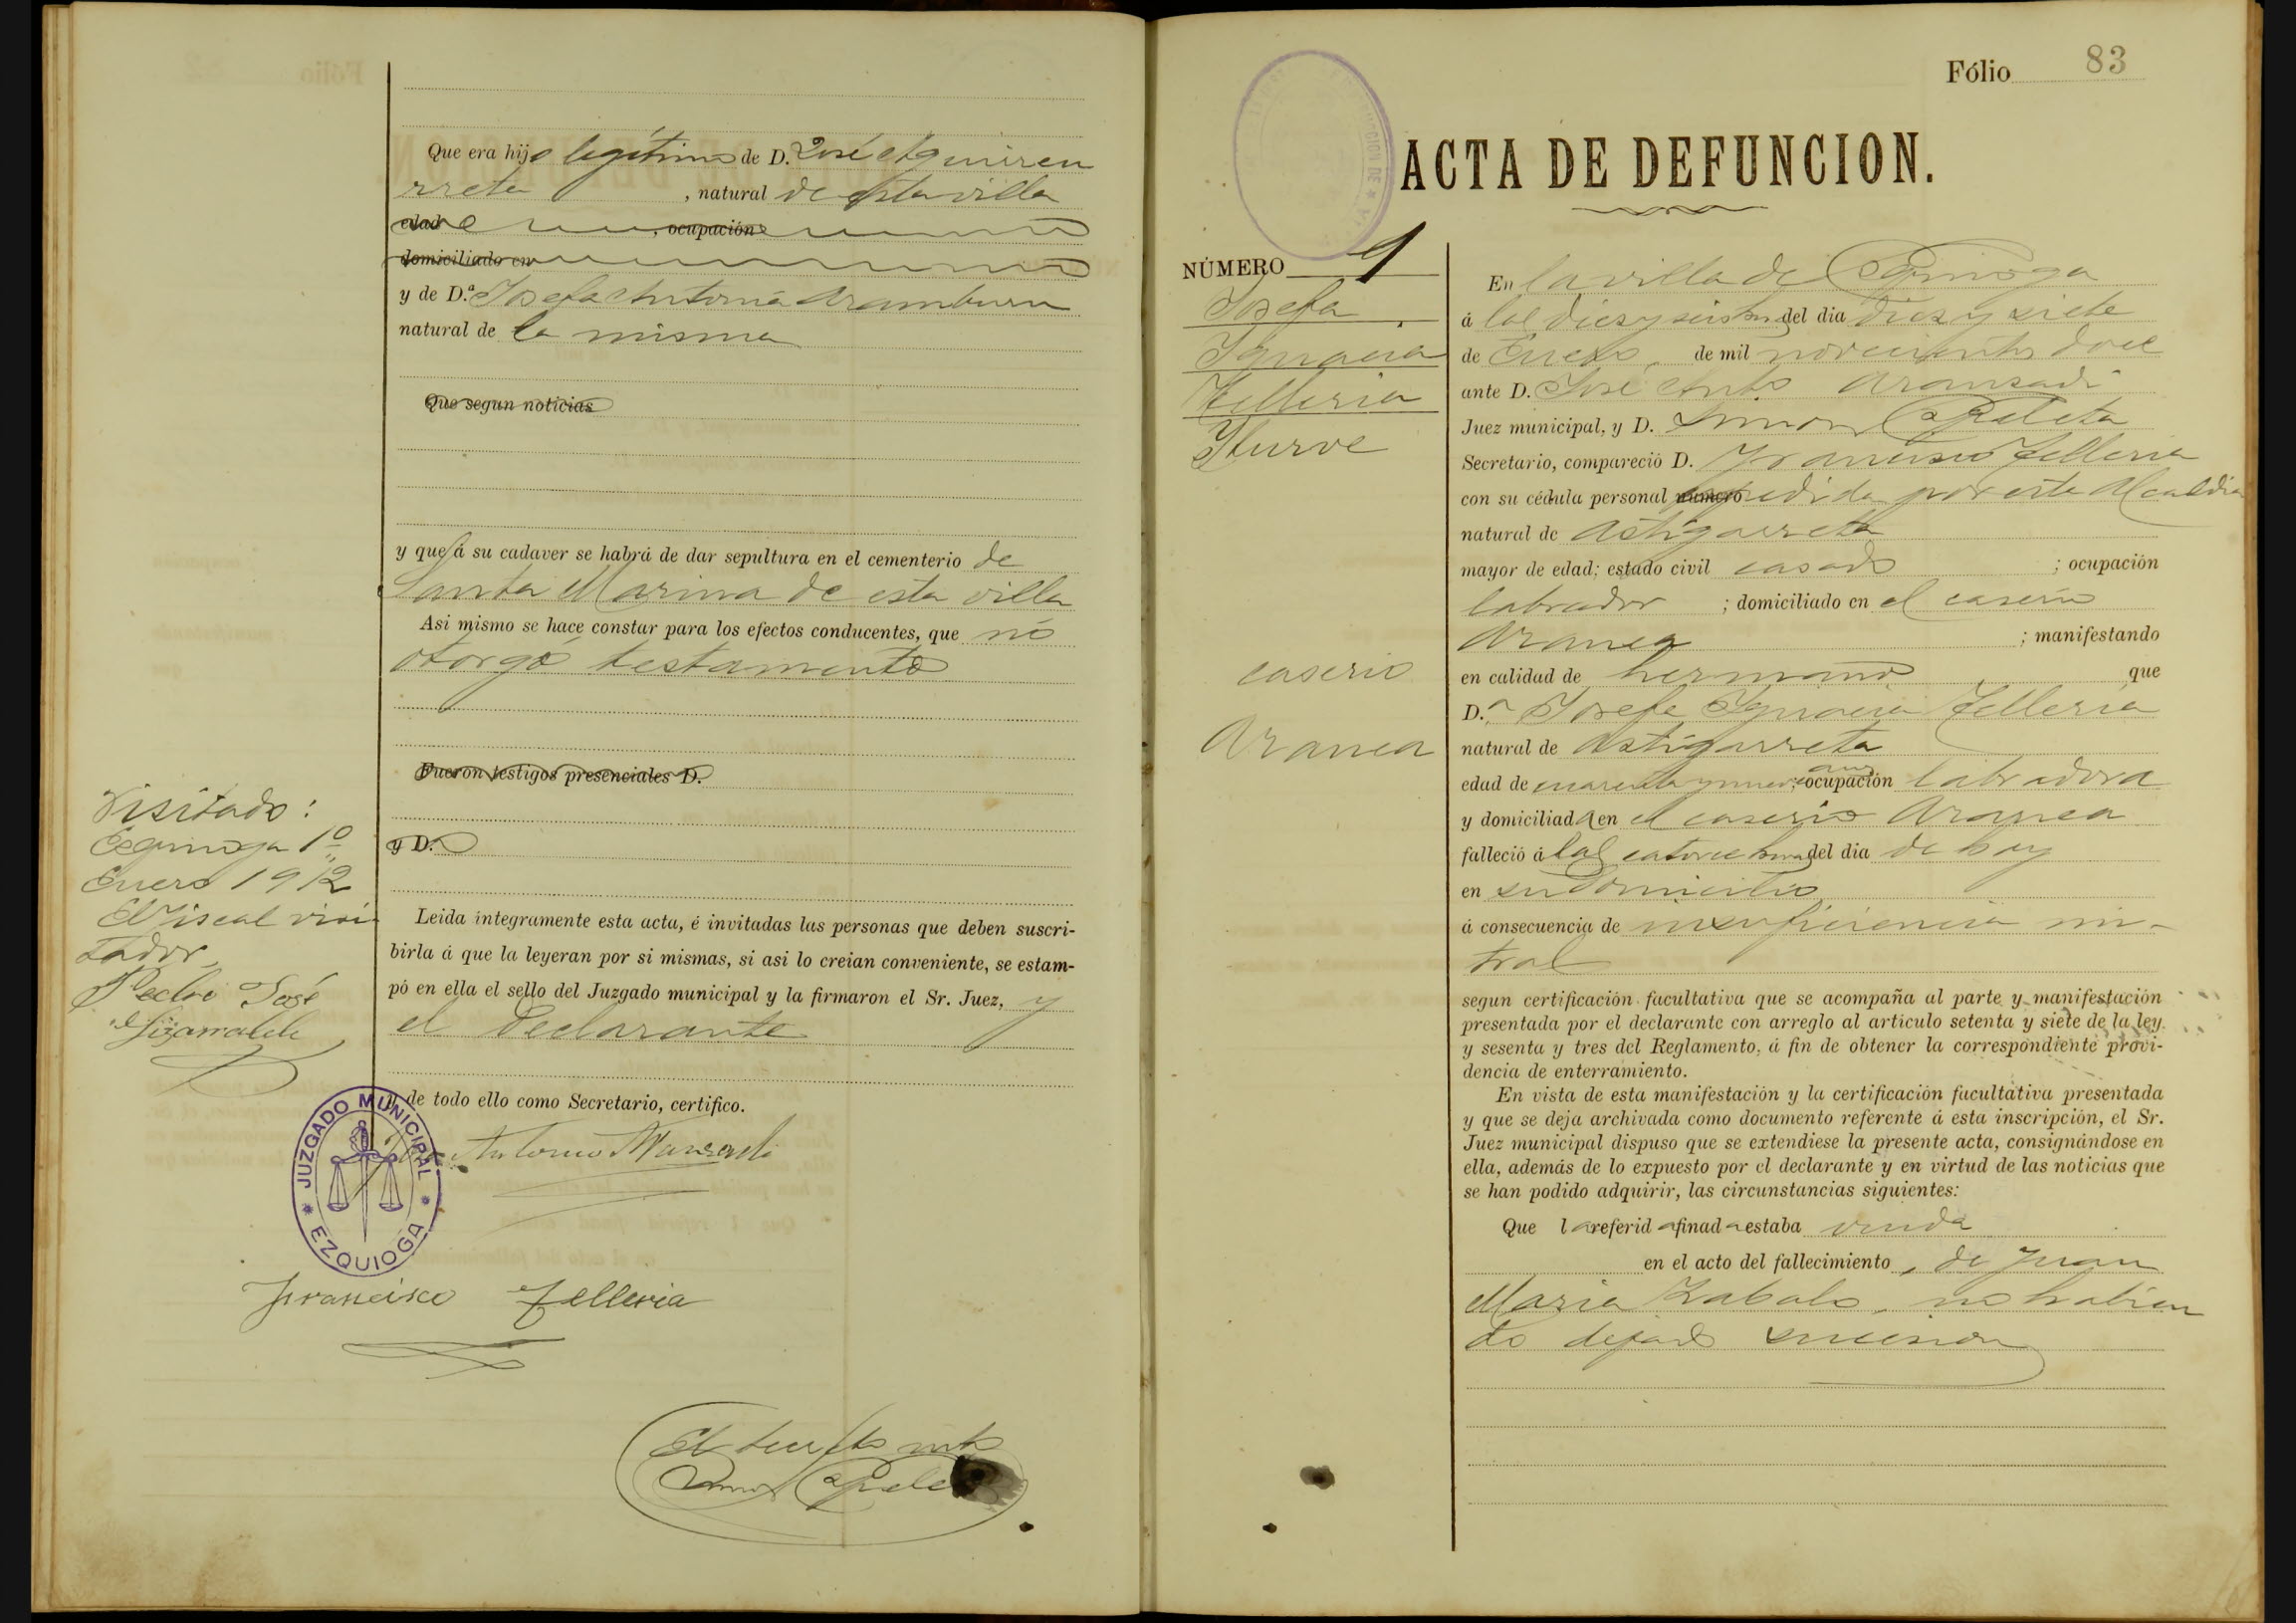 Que era hijo legítimo de D. José Aguirreu
rreta , natural de esta villa
edad , ocupación
domiciliado en
y de D.ª Josefa Antonia Aramburu
natural de la misma
Que segun noticias
y que á su cadaver se habrá de dar sepultura en el cementerio de
Santa Marina de esta villa
Asi mismo se hace constar para los efectos conducentes, que nó
otorgó testamento
Fueron testigos presenciales D.
y D.
Leida íntegramente esta acta, é invitadas las personas que deben suscri-
birla á que la leyeran por si mismas, si asi lo creian conveniente, se estam-
pó en ella el sello del Juzgado municipal y la firmaron el Sr. Juez, y
el declarante
y de todo ello como Secretario, certifico.
José Antonio Aransadi
JUZGADO MUNICIPAL
EZQUIOGA
Francisco Telleria
Visitado:
Ezquioga 1º
Enero 1912
El Fiscal visi
tador
Pedro José
Fólio 83
ACTA DE DEFUNCION.
NÚMERO 1
Josefa
Ignacia
Telleria
Yturve
caserio
Aranea
En la villa de Ezquioga
á las diez y seis horas del dia diez y siete
de Enero, de mil novecientos doce
ante D. José Antº Aransadi
Juez municipal, y D. Simon
Secretario, compareció D. Francisco Telleria
con su cédula personal número expedida por esta Alcaldia
natural de Astigarreta
mayor de edad; estado civil casado ; ocupación
labrador ; domiciliado en el caserio
Aranea ; manifestando
en calidad de hermano que
D.ª Josefa Ignacia Telleria
natural de Astigarreta
edad de cuarenta y nueve años ; ocupación labradora
y domiciliada en el caserio Aranea
falleció á las catorce horas del dia de hoy
en su domicilio
á consecuencia de insuficiencia mi-
tral
segun certificación facultativa que se acompaña al parte y manifestación
presentada por el declarante con arreglo al artículo setenta y siete de la ley
y sesenta y tres del Reglamento, á fin de obtener la correspondiente provi-
dencia de enterramiento.
En vista de esta manifestación y la certificación facultativa presentada
y que se deja archivada como documento referente á esta inscripción, el Sr.
Juez municipal dispuso que se extendiese la presente acta, consignándose en
ella, además de lo expuesto por el declarante y en virtud de las noticias que
se han podido adquirir, las circunstancias siguientes:
Que la referida finada estaba viuda
en el acto del fallecimiento, de Juan
Maria Zabalo, no habien
do dejado sucesion